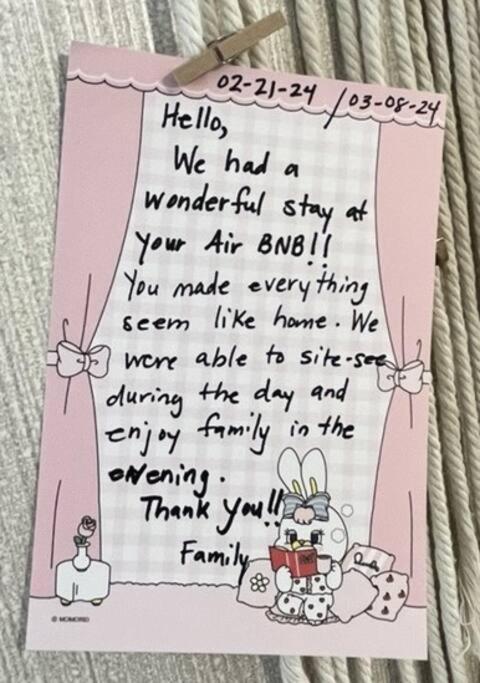 02-21-24 / 03-08-24
Hello,
We had a
wonderful stay at
your Air BNB!!
You made everything
seem like home. We
were able to site-see
during the day and
enjoy family in the
evening.
Thank you!!
Family
© MOMOIRO